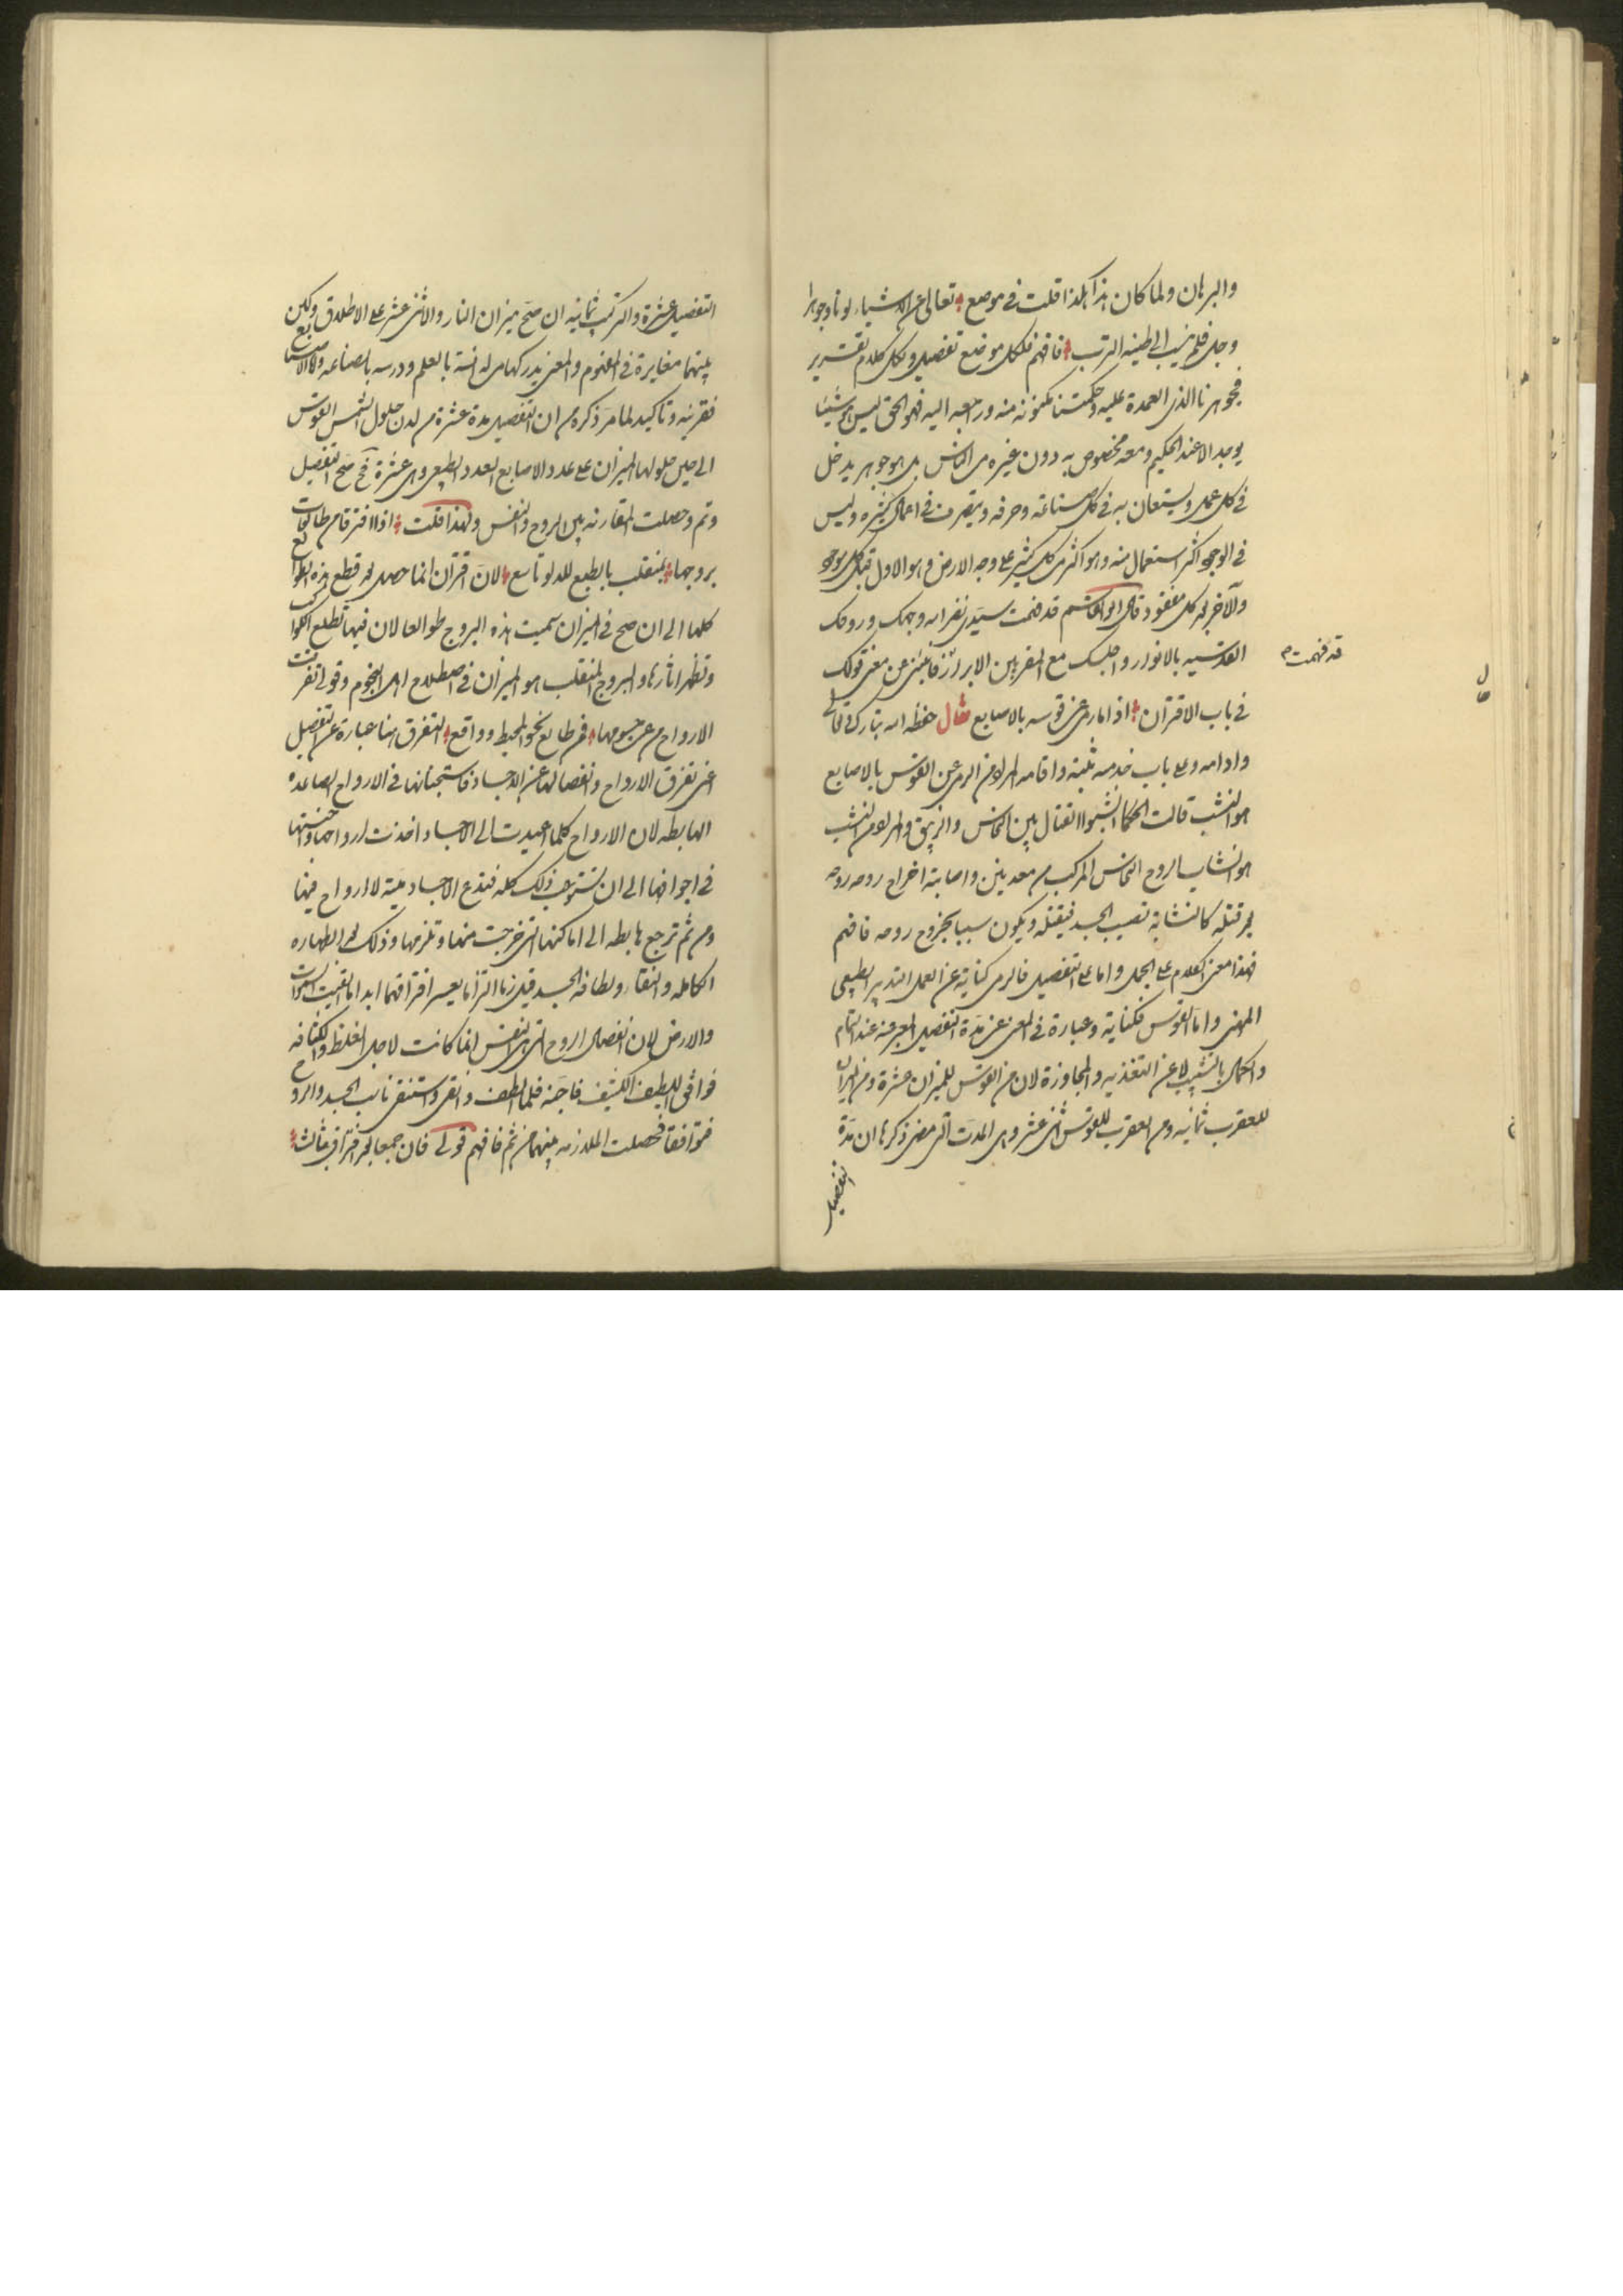 والبرهان ولما كان هذا هكذا قلت في موضع تعالى عن الاشياء لونا وجوهرا
وجل فلم ينسب الى طينه الترب فافهم فلكل موضع تفصيل ولكل كلام تقرير
فجوهرنا الذي العمدة عليه وحكمتنا مكنونة منه وراجعه اليه فهو الحق ليس هو شيئا
يوجد الا عند الحكيم ومعه مخصوص به دون غيره من الناس بل هو جوهر يدخل
في كل عمل ويستعان به في كل صناعة وحرفه ويتصرف في اعمال كثيره وليس
في الوجود اكثر استعمال منه وهو اكثر من كل كثير على وجه الارض وهو الاول قبل كل موجود
والآخر بعد كل مفقود قال ابو القاسم قد فهمت سيدي نضر الله وجهك وروحك
قد فهمت
القدسيه بالانوار واجلسك مع المقربين الابرار فانبئني عن معنى قولك
في باب الاقتران اذا ما رمى عن قوسه بالاصابع فقال حفظه الله تبارك وتعالى
وادامه وعلى باب خدمته ثبته واقامه المراد من الرمي عن القوس بالاصابع
هو النشب قالت الحكما انشبوا القتال بين النحاس والزيبق والمراد من النشب
هو انشاب الروح النحاس المركب من معدنين واصابته اخراج روحه روحه
بعد قتله كالنشابة تصيب الجسد فيقتله ويكون سببا لخروج روحه فافهم
فهذا معنى الكلام على الجمل واما على التفصيل فالرمي كناية عن العمل التدبير الطبيعي
المهني واما القوس فكناية وعبارة في المعنى عن مدة التفصيل المعبر عنه عند التمام
والكمال بالتشبيب لا عن التغذيه والمجاوزة لان من القوس للميزان عشرة ومن الميزان
للعقرب ثمانيه ومن العقرب للقوس اثنى عشر وهي المدت التي مضى ذكرها ان مدة
التفصيل
التفصيل عشرة والتركيب ثمانيه ان صح ميزان النار والاثنى عشر على الاطلاق ولكن
بينهما مغايرة في المفهوم والمعنى يدركها من له انسة بالعلم ودرسه بالصناعه واما الاصابع
فقرينه وتاكيد لما مر ذكره من ان التفصيل مدة عشرة من لدن حلول الشمس القوس
الى حين حلولها الميزان على عدد الاصابع العدد الطبيعي وهي عشرة فح صح التفصيل
وتم وحصلت المقارنه بين الروح والنفس ولهذا قلت اذا لا افترقا من طالعات
بروجها بمنقلب بالطبع للدلو تاسع لان اقتران انما حصل بعد قطع هذه الطوالع
كلها الى ان صح في الميزان سميت هذه البروج طوالعا لان فيها تطلع الكواكب
وتظهر اثارها والبروج المنقلب هو الميزان في اصطلاح اهل النجوم وقولي تفرقت
الارواح من عن جسومها فمن طالع نحو المحيط وواقع التفرق هنا عبارة عن التفصيل
اعني تفرق الارواح وانفصالها عن الاجساد فاستجنانها في الارواح الصاعده
الهابطه لان الارواح كلما اعيدت الى الاجساد اخذت ارواحها واجنتها
في اجوافها الى ان تستوعب ذلك كله فتدع الاجساد ميتة لا ارواح فيها
ومن ثم ترجع هابطه الى اماكنها التي خرجت منها وتلزمها وذلك بعد الطهاره
الكامله والنقاء ولطافة الجسد فيلزما التزاما يعسر افتراقهما ابدا ما بقيت السموات
والارض لان انفصال الروح التي هي النفس انما كانت لاجل الغلظ والكثافه
فوافى اللطيف الكثيف فاجنه فلما لطف وانقى واستنقى ناسب الجسد والروح
فتوافقا فحصلت الملازمه بينهما من ثم فافهم قولي فان جمعا بعد افتراق بثالث